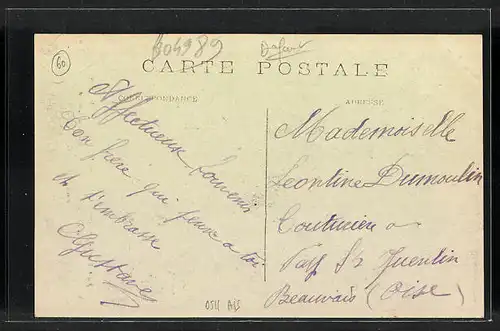 604989
60
CARTE POSTALE
CORRESPONDANCE
ADRESSE
Affectueux Souvenir
Ton frère qui pense a toi
et t'embrasse
Gustave
Mademoiselle
Leontine Dumoulin
Couturiere a
St Quentin
Beauvais (Oise)